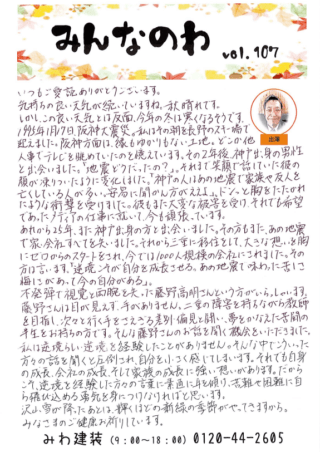 みんなのわ
vol.107
いつもご愛読ありがとうございます。
気持ちの良い天気が続いていますね。秋晴れです。
しかし、この良い天気とは反面、今年の冬は寒くなるそうです。
出澤
1995年1月17日阪神大震災。私はその朝を長野のスキー場で
迎えました。阪神方面は、縁もゆかりもない土地。どこか他
人事でテレビを眺めていたのを覚えています。その2年後、神戸出身の男性
と出会いました。「地震どうだった?」。それまで笑顔で話していた彼の
顔が凍りついたように変化しました。「神戸の人はあの地震で家族や友人を
亡くしている人が多い。安易に聞かん方がええよ。」ドンっと胸をたたかれ
たような衝撃を受けました。彼もまた大変な被害を受け、それでも希望
であったメディアの仕事に就いて、今も頑張っています。
あれから25年、また神戸出身の方と出会いました。その方もまた、あの地震
で家、会社すべてを失いました。それから三重に移住をして、大きな想いを胸
にゼロからのスタートをきられ、今では1000人規模の会社にされました。その
方は言います。「逆境こそが自分を成長させる。あの地震で味わった苦しさ
悔しさがあって今の自分がある」。
不発弾で視覚と両腕を失った藤野高明さんという方がいらっしゃいます。
藤野さんは目が見えず、手がありません。二重の障害を持ちながら教師
を目指し、次々と行く手をさえぎる差別、偏見と闘い、夢をかなえた苦闘の
半生をお持ちの方です。そんな藤野さんのお話を聞く機会をいただきました。
私は逆境らしい逆境を経験したことがありません。そんな中でこういった
方々の話を聞くと圧倒され、自分を小さく感じてしまいます。それでも自身
の成長、会社の成長、そして家族の成長に強い想いがあります。だから
こそ、逆境を経験した方々の言葉に素直に耳を傾け、苦難や困難に自
ら飛び込める勇気を身につけなければと思います。
沢山雪が降ったあとは、輝くほどの新緑の季節がやってきますから。
みなさまのご健康お祈りしています。
みわ建装 (9:00〜18:00) 0120-44-2605